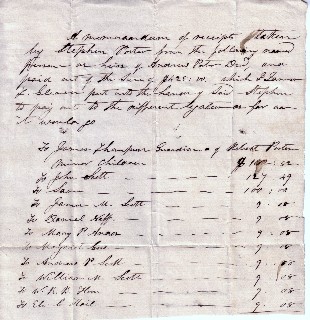 A memorandum of receipts taken
by Stephen Porter from the following named
person or heirs of Andrew Porter Decd and
paid out of the Sum of $425: 00. which
L. put into the hands of Said Stephen
to pay out to the different Legatees as far as
it would go
To James Thompson Guardian of Robert Porter
minor Children
To John Scott — — — 127 49
To Same — — — 100 : 00
To James M. Scott — — — 9 . 08
To Daniel Neff — — — 9 . 08
To Mary P. — — — 9 . 08
To Margaret — — — 9 . 08
To Andrew P. Scott — — — 9 . 08
To William M. Scott — — — 9 . 08
To W. R. — — — 9 . 08
To — — — 9 . 08